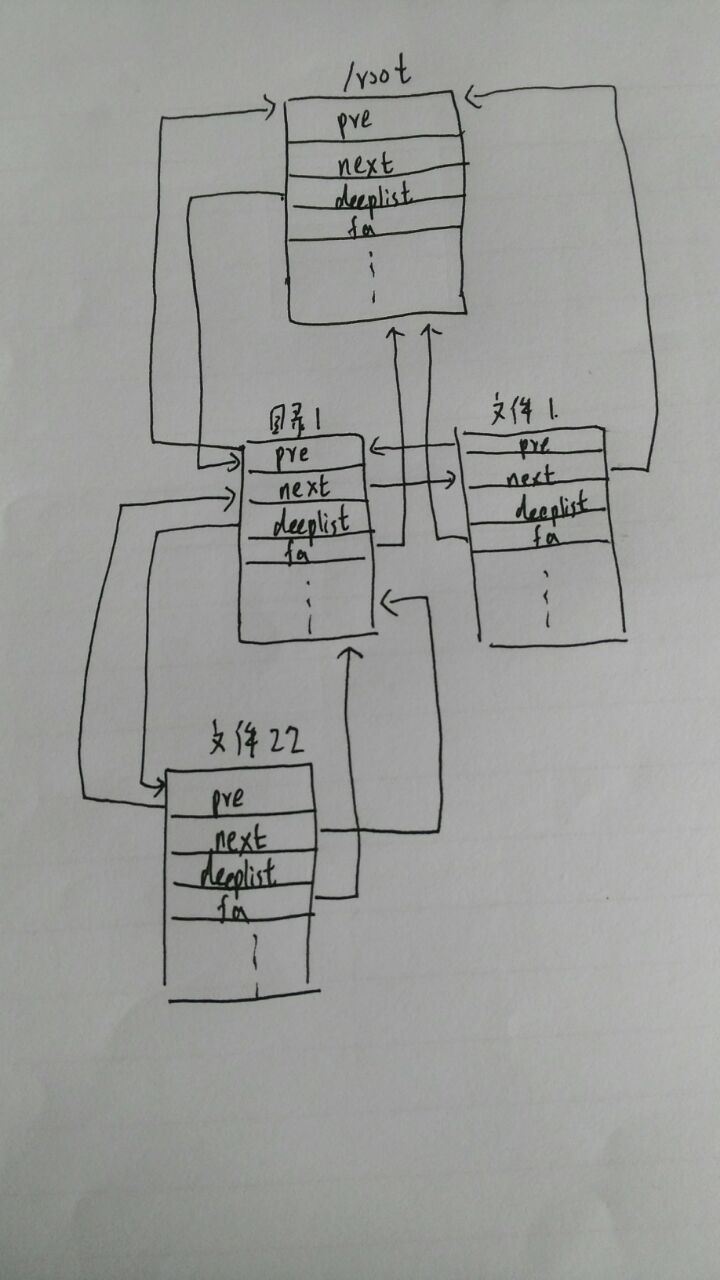 /root
pre
next
deeplist
fa
目录1
pre
next
deeplist
fa
文件1.
pre
next
deeplist
fa
文件22
pre
next
deeplist
fa